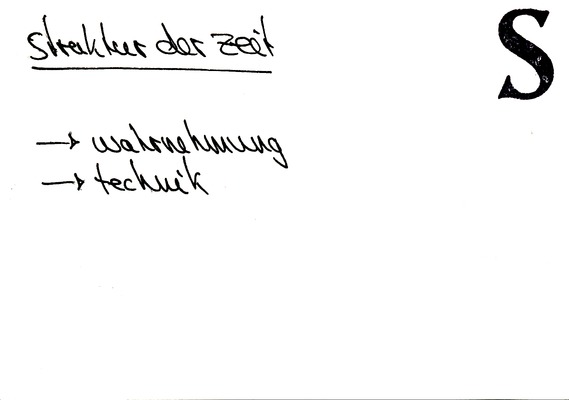 struktur der zeit
S
→ wahrnehmung
→ technik